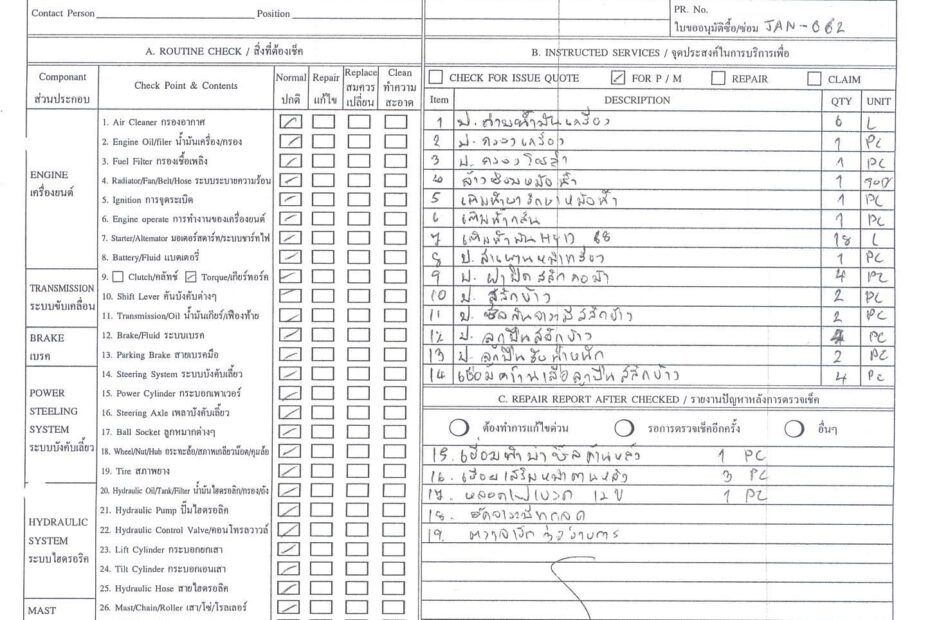 Contact Person
Position
PR. No.
ใบขออนุมัติซื้อ/ซ่อม JAN-062
A. ROUTINE CHECK / สิ่งที่ต้องเช็ค
B. INSTRUCTED SERVICES / จุดประสงค์ในการบริการเพื่อ
Componant
ส่วนประกอบ
Check Point & Contents
Normal ปกติ
Repair แก้ไข
Replace สมควรเปลี่ยน
Clean ทำความสะอาด
CHECK FOR ISSUE QUOTE
FOR P / M
REPAIR
CLAIM
Item
DESCRIPTION
QTY
UNIT
ENGINE
เครื่องยนต์
1. Air Cleaner กรองอากาศ
2. Engine Oil/filer น้ำมันเครื่อง/กรอง
3. Fuel Filter กรองเชื้อเพลิง
4. Radiator/Fan/Belt/Hose ระบบระบายความร้อน
5. Ignition การจุดระเบิด
6. Engine operate การทำงานของเครื่องยนต์
7. Starter/Altemator มอเตอร์สตาร์ท/ระบบชาร์ทไฟ
8. Battery/Fluid แบตเตอรี่
TRANSMISSION
ระบบขับเคลื่อน
9. Clutch/คลัทช์ Torque/เกียร์ทอร์ค
10. Shift Lever คันบังคับต่างๆ
11. Transmission/Oil น้ำมันเกียร์/เฟืองท้าย
BRAKE
เบรค
12. Brake/Fluid ระบบเบรค
13. Parking Brake สายเบรคมือ
POWER
STEELING
SYSTEM
ระบบบังคับเลี้ยว
14. Steering System ระบบบังคับเลี้ยว
15. Power Cylinder กระบอกเพาเวอร์
16. Steering Axle เพลาบังคับเลี้ยว
17. Ball Socket ลูกหมากต่างๆ
18. Wheel/Nut/Hub กระทะล้อ/สภาพเกลียวน๊อต/ดุมล้อ
19. Tire สภาพยาง
HYDRAULIC
SYSTEM
ระบบไฮดรอริค
20. Hydraulic Oil/Tank/Filter น้ำมันไฮดรอลิก/กรอง/ถัง
21. Hydraulic Pump ปั๊มไฮดรอลิค
22. Hydraulic Control Valve/คอนโทรลวาวล์
23. Lift Cylinder กระบอกยกเสา
24. Tilt Cylinder กระบอกเอนเสา
25. Hydraulic Hose สายไฮดรอลิค
MAST
26. Mast/Chain/Roller เสา/โซ่/โรลเลอร์
1 ป. ถ่ายน้ำมันเครื่อง 6 L
2 ป. กรองเครื่อง 1 PC
3 ป. กรองโซล่า 1 PC
4 ล้าง หม้อน้ำ 1
5 เติมน้ำยา หม้อน้ำ 1 PC
6 เติมน้ำกลั่น 1 PC
7 เติมน้ำมัน HYD 68 18 L
8 ป. 1 PC
9 ป. ฝาปิดสลัก 4 PC
10 ป. สลักขาว 2 PC
11 ป. ซีล สลักขาว 2 PC
12 ป. ลูกปืนสลักขาว 4 PC
13 ป. ลูกปืน 2 PC
14 เชื่อม ลูกปืนสลักขาว 4 PC
C. REPAIR REPORT AFTER CHECKED / รายงานปัญหาหลังการตรวจเช็ค
ต้องทำการแก้ไขด่วน
รอการตรวจเช็คอีกครั้ง
อื่นๆ
15. เชื่อม 1 PC
16. 3 PC
17. หลอดไฟเบรค 12 V 1 PC
18. อัดจารบี
19. ตรวจเช็ก